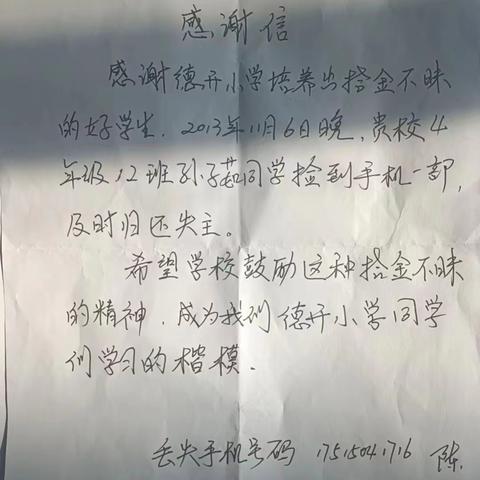 感谢信
感谢德开小学培养出拾金不昧
的好学生. 2013年11月6日晚, 贵校4
年级12班孙子茹同学捡到手机一部,
及时归还失主。
希望学校鼓励这种拾金不昧
的精神. 成为我们德开小学同学
们学习的楷模.
丢失手机号码 17515041716 陈.